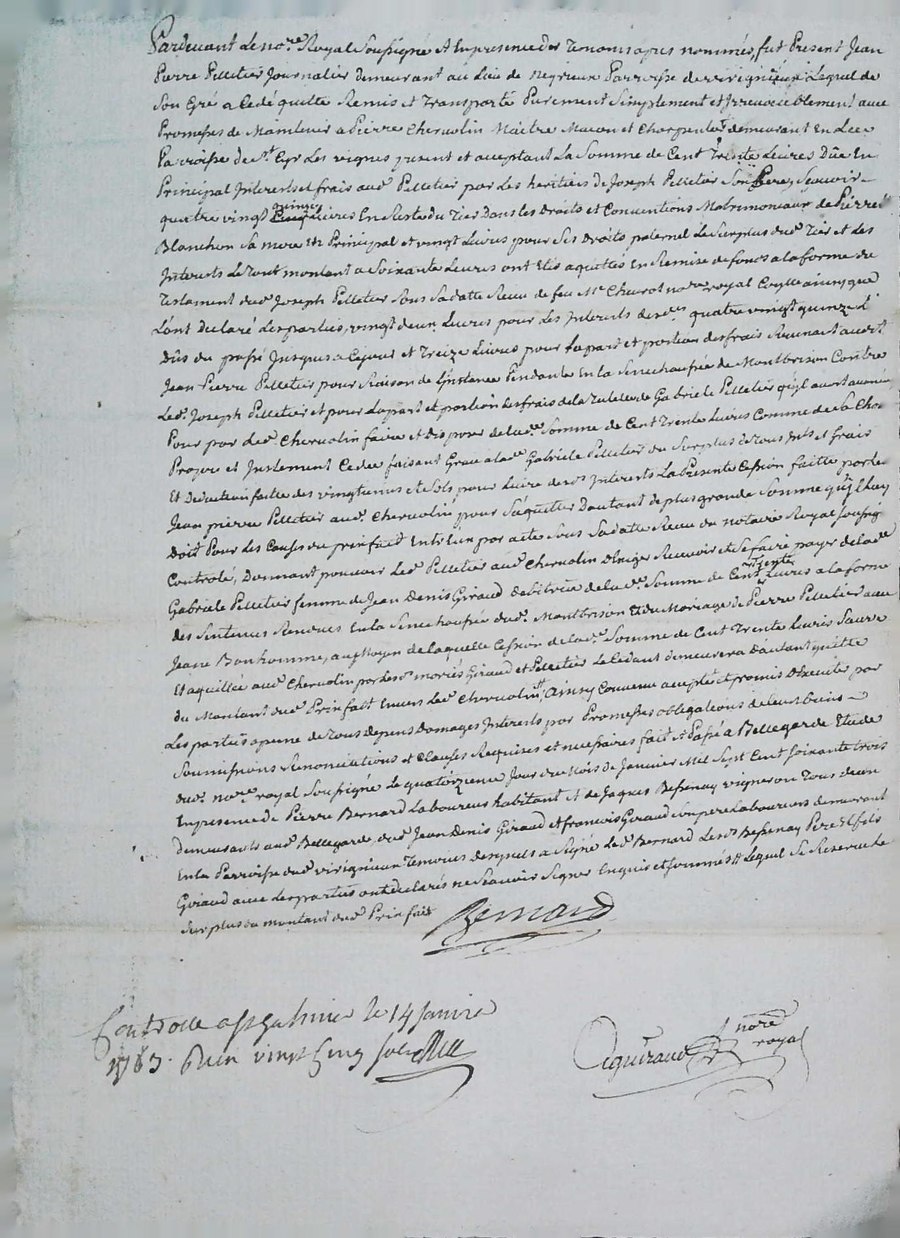 Pardevant Le no.re Royal Soussigné et En presence des Temoins apres nommés, fut Present Jean
Pierre Pelletier Journalier demeurant au Lieu de Meyrieux Parroisse de virignieux Lequel de
Son Gré a Cedé quitte Remis et Transporté Purement Simplement et Irrevocablement avec
Promesses de Maintenir a Pierre Chervolin Maitre Macon et Charpentier demeurant En La
Parroisse de St Cyr Les vignes present et acceptant La Somme de Cent Trente Livres Düe En
Principal Interests et frais aud. Pelletier par Les heritiers de Joseph Pelletier Son Pere, Scavoir
quatre vingt quinze Livres En Reste du Tier Dans les Droits et Conventions Matrimoniaux de Pierre
Blanchon Sa mere En Principal et vingt Livres pour Ses Droits paternel Le Surplus dud. Tier et des
Interests Le Tout montant a Soixante Livres ont Etés aquittés En Remise de fonds a la forme du
Testament dud. Joseph Pelletier Sous Sa datte Recu de feu Me no.re royal ainsy que
L'ont declaré Les parties, vingt deux Livres pour Les Interests de quatre vingt quinze L.
Dûs du passé Jusques a Ce jour et Treize Livres pour La part et portion des frais
Jean Pierre Pelletier pour Raison de L'instance Pendante En La Senechaussée de Montbrison Contre
Led. Joseph Pelletier et pour La part et portion des frais de la Tutele de Gabriele Pelletier qu'il avoit
Pour par Led. Chervolin faire et disposer de lad. Somme de Cent Trente Livres Comme de Sa Chose
Propre et Justement Cedée faisant Grace a lad. Gabriele Pelletier du Surplus de Tous Ints et frais
Et Deduction faite des vingtiemes et Sols pour Livre desd. Interests La Presente Cession faitte par led.
Jean pierre Pelletier aud. Chervolin pour S'aquitter D'autant de plus grande Somme qu'il luy
Doit Pour Les Causes du prinfait Entr'eux par acte Sous Sa datte Recu du notaire Royal Soussig.
Controlé, Donnant pouvoir Led. Pelletier aud. Chervolin d'Exiger Recevoir et Se faire payer de lad.
Gabriele Pelletier femme de Jean Denis Giraud debitrice de la d. Somme de Cent Trente Livres a la forme
des Sentences Rendues En La Senechaussée dud. Montbrison Et du Mariage de Pierre Pelletier avec
Jeane Bonhomme, au Moyen de laquelle Cession de lad. Somme de Cent Trente Livres
Et aquittée aud. Chervolin par les d. mariés Giraud et Pelletier Le Cedant demeurera d'autant quitte
du Montant dud. Prinfait Envers Led. Chervolin, Ainsy Convenu accepté et promis d'Executer par
Les parties a peine de Tous depens Domages Interests par Promesses obligations de Leurs biens
Soumissions Renonciations et Clauses Requises et necessaires fait et Passé a Bellegarde Etude
dud. no.re royal Soussigné Le quatorzieme Jour du Mois de Janvier Mil Sept Cent Soixante trois
En presence de Pierre Bernard Laboureur habitant et de Jaques Bessenay vigneron Tous deux
demeurants aud. Bellegarde, dud. Jean Denis Giraud et francois Giraud Son pere Laboureurs demeurant
En la Parroisse dud. virignieux Temoins desquels a Signé Led. Bernard Les d. Bessenay Pere et fils
Giraud avec Les parties ont declarés ne Scavoir Signer Enquis et Sommés # Lequel Se Reserve Le
Surplus du montant dud. Prinfait
Bernard
Controllé a St Galmier le 14 Janvier
1763. Recu vingt Cinq Sols
Giraud no.re royal